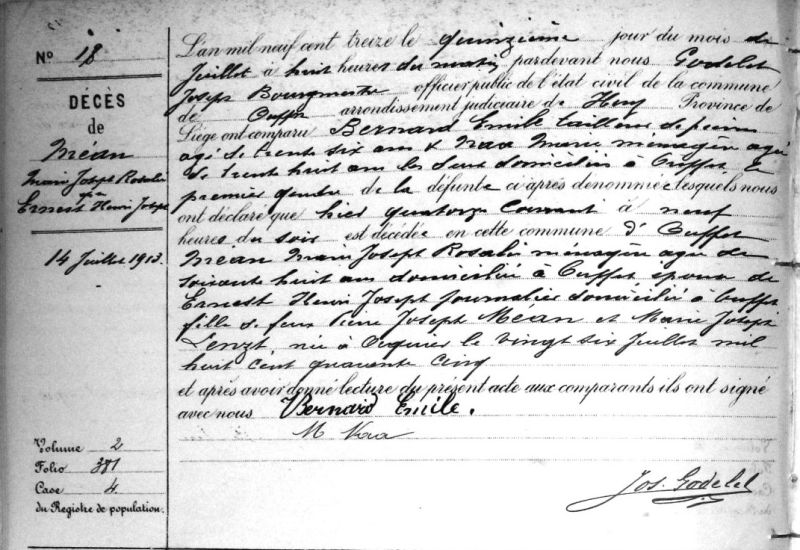 No 18
DÉCÈS
de
Méan
Marie Joseph Rosalie
Ernest Henri Joseph
14 Juillet 1913.
Volume 2
Folio 381
Case 4.
du Registre de population.
L'an mil neuf cent treize le quinzième jour du mois de
Juillet à huit heures du matin pardevant nous Godelet
Joseph Bourgmestre officier public de l'état civil de la commune
de Ouffet arrondissement judiciaire de Huy Province de
Liége ont comparu Bernard Emile tailleur de pierres
agé de trente six ans & Naa Marie ménagère agée
de trente huit ans les deux domiciliés à Ouffet, le
premier gendre de la défunte ci-après dénommée lesquels nous
ont déclaré que hier quatorze courant à neuf
heures du soir est décédée en cette commune d'Ouffet
Méan Marie Joseph Rosalie ménagère agée de
soixante huit ans domiciliée à Ouffet épouse de
Ernest Henri Joseph journalier domicilié à Ouffet
fille de feus Pierre Joseph Mean et Marie Joseph
née à le vingt six Juillet mil
huit cent quarante cinq
et après avoir donné lecture du présent acte aux comparants ils ont signé
avec nous Bernard Emile.
M Naa
Jos. Godelet